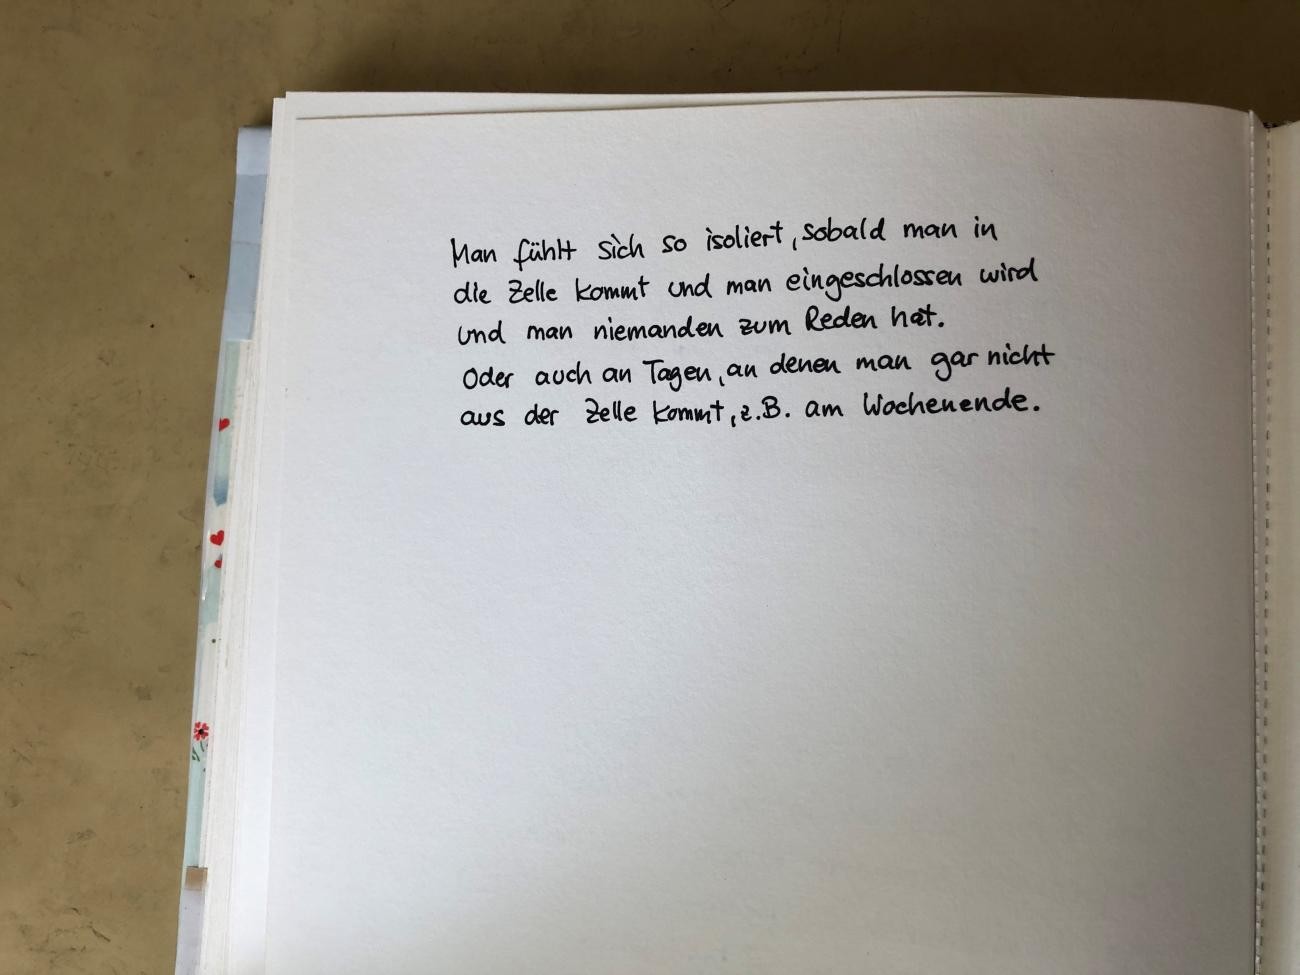 Man fühlt sich so isoliert, sobald man in
die Zelle kommt und man eingeschlossen wird
und man niemanden zum Reden hat.
Oder auch an Tagen, an denen man gar nicht
aus der Zelle kommt, z.B. am Wochenende.